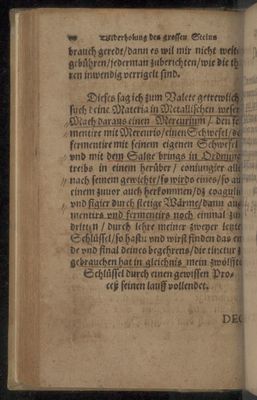 Widerholung des grossen Steins
brauch geredt/dann es wil mir nicht weite
gebühren/jederman zuberichten/wie die th
ren inwendig verrigelt sind.
Dieses sag ich zum Valete getrewlich
such deine Materia in Metallischen weser
Mach daraus einen Mercurium/ den fe
mentire mit Mercurio/einen Schwefel/de
fermentire mit seinem eigenen Schwefel
vnd mit dem Saltze brings in Ordnung
treibs in einem herüber/ coniungier alle
nach seinem gewichte/so wirds eines/so au
einem zuvor auch herkommen/dz coagulir
vnd figier durch stetige Wärme/dann aug
mentirs vnd fermentirs noch einmal zu
dritten/ durch lehre meiner zweyer letzte
Schlüssel/so hastu vnd wirst finden das en
de vnd final deines begehrens/die tinctur z
gebrauchen hat in gleichnis mein zwölffte
Schlüssel durch einen gewissen Pro-
ceß seinen lauff vollendet.
DEC